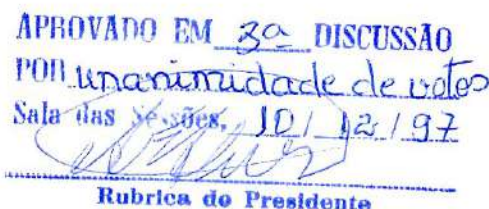 APROVADO EM 3ª DISCUSSÃO
POR unanimidade de votos
Sala das Sessões, 10 / 12 / 97
Rubrica do Presidente